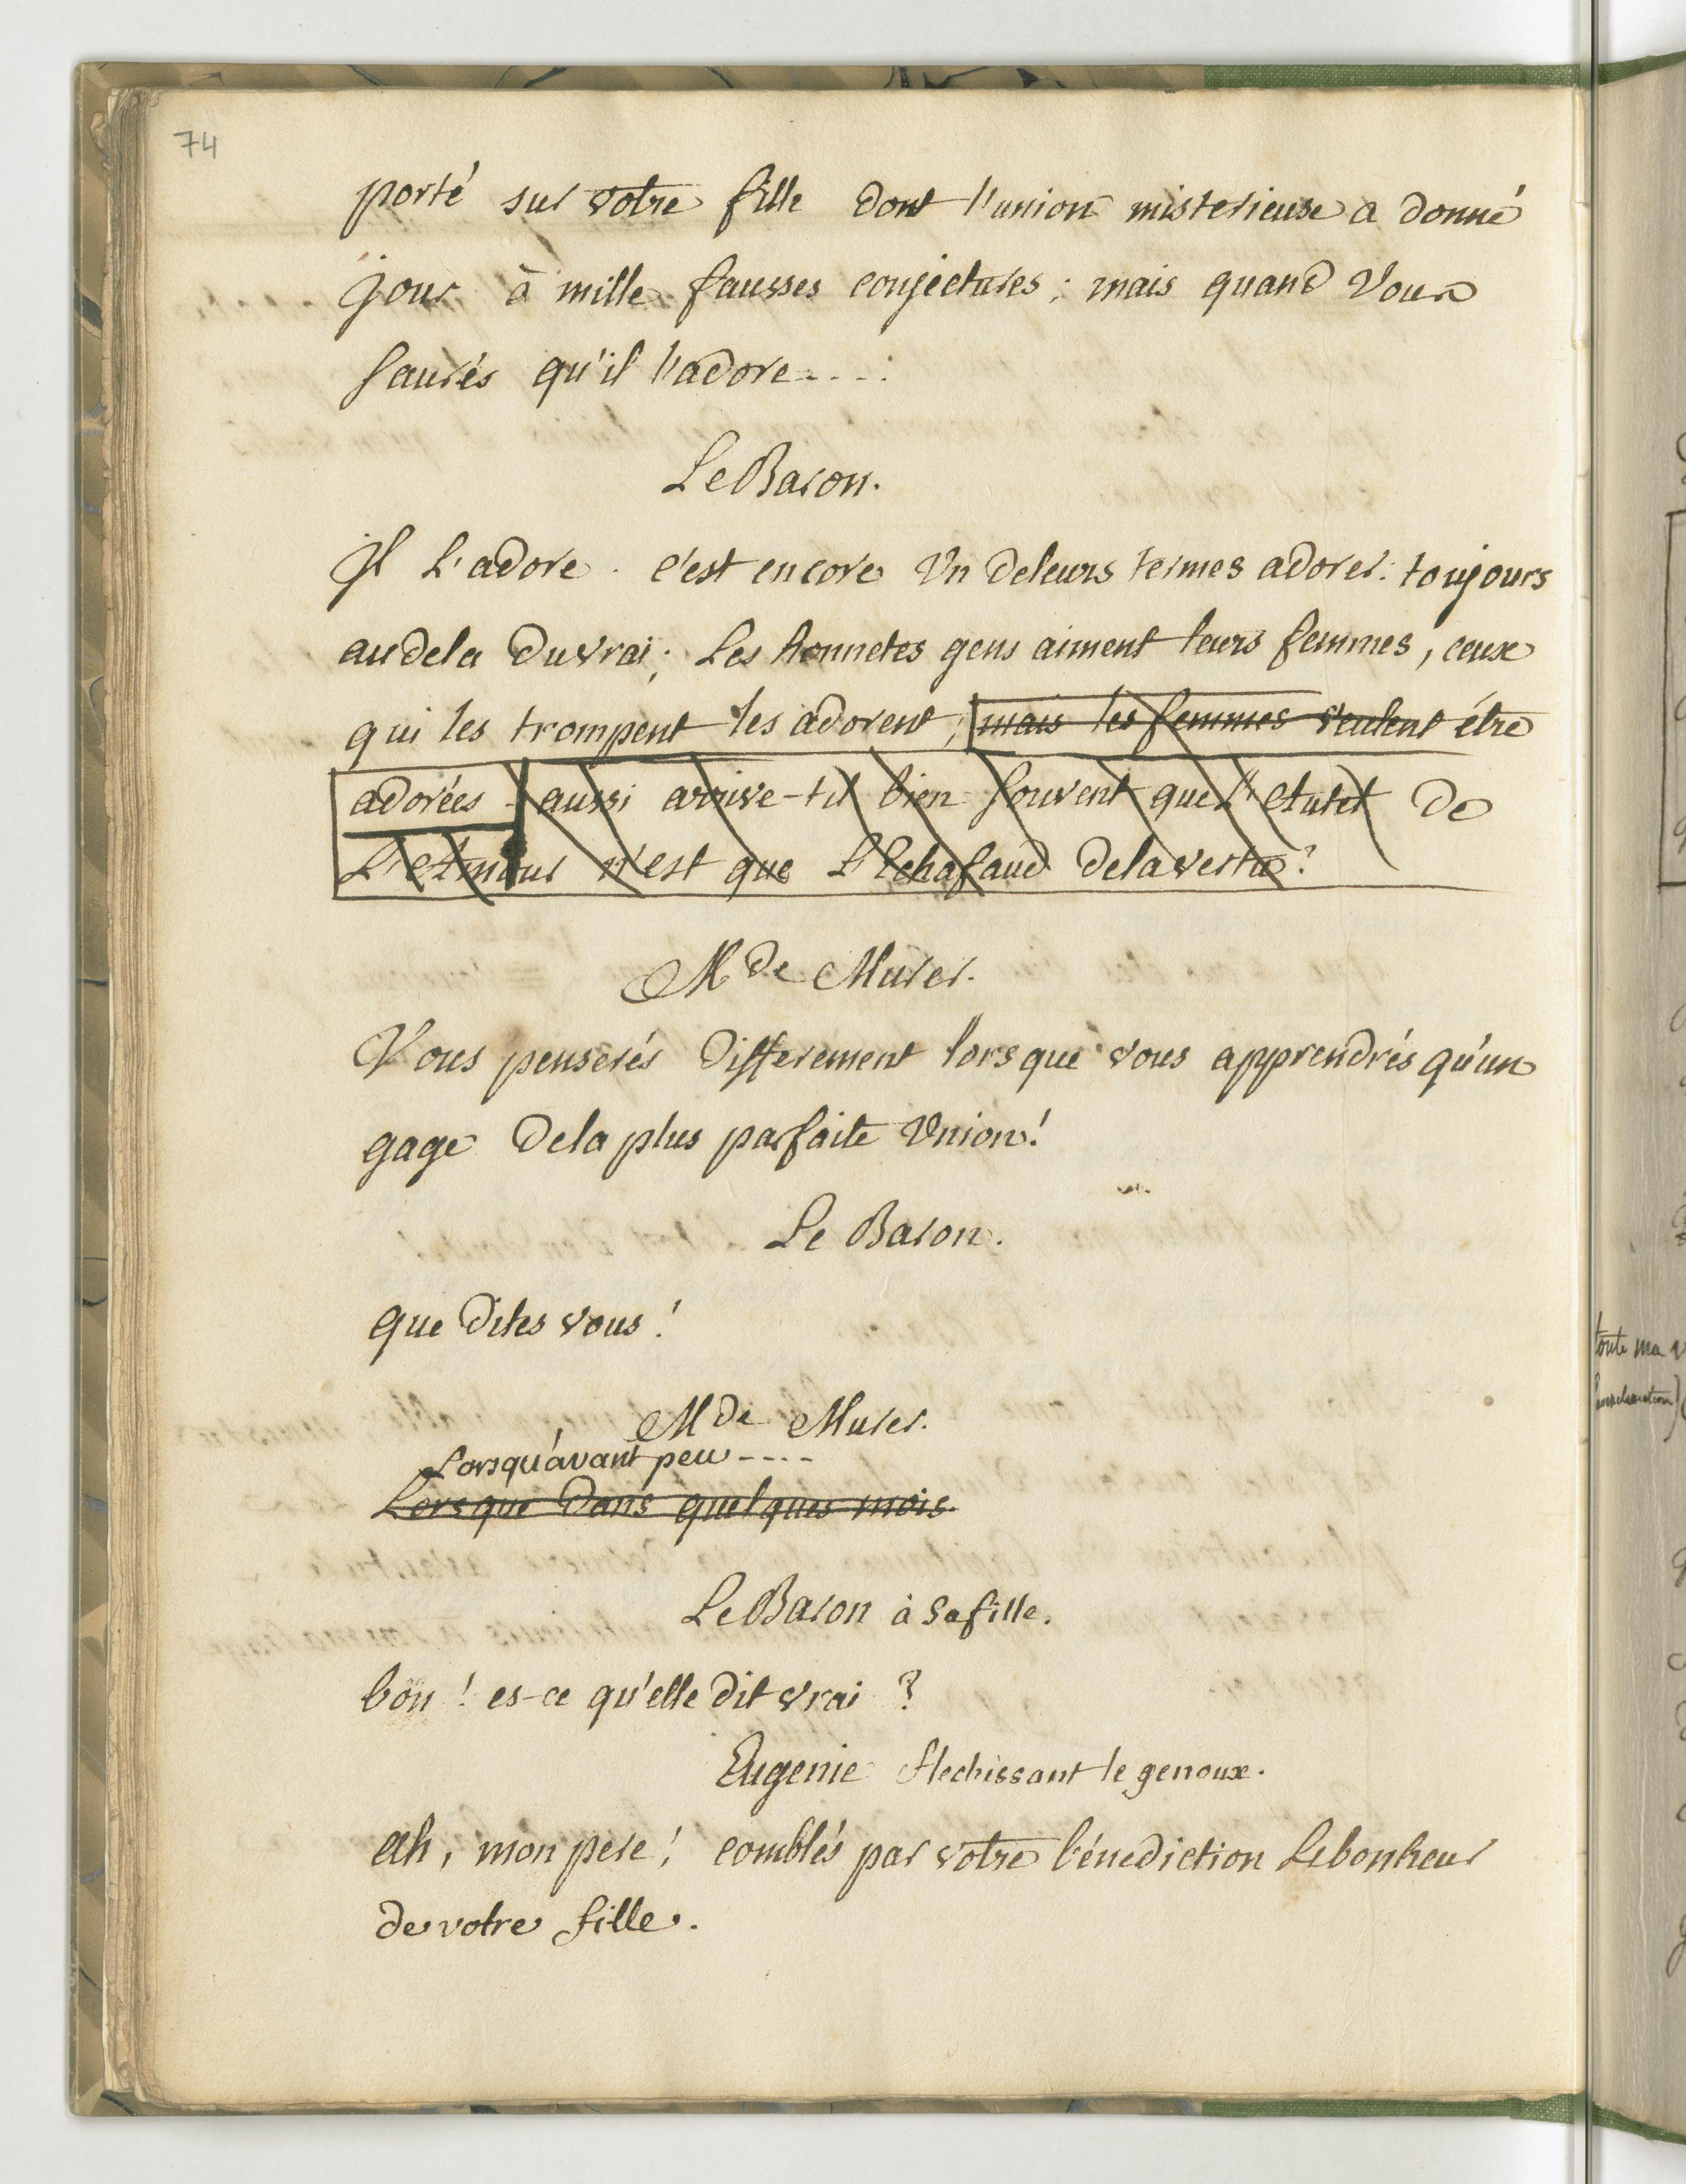 74
porté sur votre fille dont l'union misterieuse a donné
jour à mille fausses conjectures ; mais quand Vous
saurés qu'il l'adore....
Le Baron.
Il L'adore . c'est encore Un deleurs termes adorer : toujours
audela Duvrai ; Les honnetes gens aiment leurs femmes, ceux
qui les trompent les adorent ; mais les femmes veulent être
adorées aussi arrive-til bien souvent que L'Autel de
L'Amour n'est que L'Echafaud delavertu ?
Mde Murer.
Vous penserés differement lorsque vous apprendrés qu'un
gage dela plus parfaite Union !
Le Baron.
que dites vous !
Mde Murer.
Lorsqu'avant peu----
Lorsque dans quelques mois.
Le Baron à safille.
bon ! es-ce qu'elle dit vrai ?
Eugenie flechissant le genoux.
Ah, mon pere ! comblés par votre bénediction Lebonheur
de votre fille.
toute ma